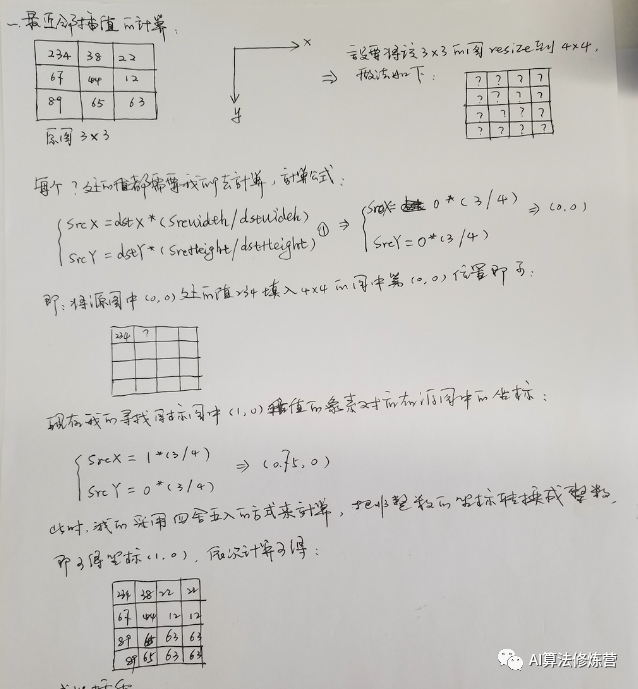 一.最近邻插值的计算:
234 38 22
67 44 12
89 65 63
原图 3×3
x
y
⇒ 设要将该3×3的图resize到4×4,
做法如下:
? ? ? ?
? ? ? ?
? ? ? ?
? ? ? ?
每个?处的值都需要我们去计算,计算公式:
{ SrcX = dstX * (Srcwidth/dstwidth)
SrcY = dstY * (SrcHeight/dstHeight) ① ⇒ { SrcX = 0*(3/4)
SrcY = 0*(3/4) ⇒ (0,0)
即:将源图中(0,0)处的值234填入4×4的图中第(0,0)位置即可:
234 ?
现在我们寻找目标图中(1,0)值的象素对应在源图中的坐标:
{ SrcX = 1*(3/4)
SrcY = 0*(3/4) ⇒ (0.75,0)
此时,我们采用四舍五入的方式来计算,把非整数的坐标转换成整数,
即可得坐标(1,0),依次计算可得:
234 38 22 22
67 44 12 12
89 65 63 63
89 65 63 63
AI算法修炼营